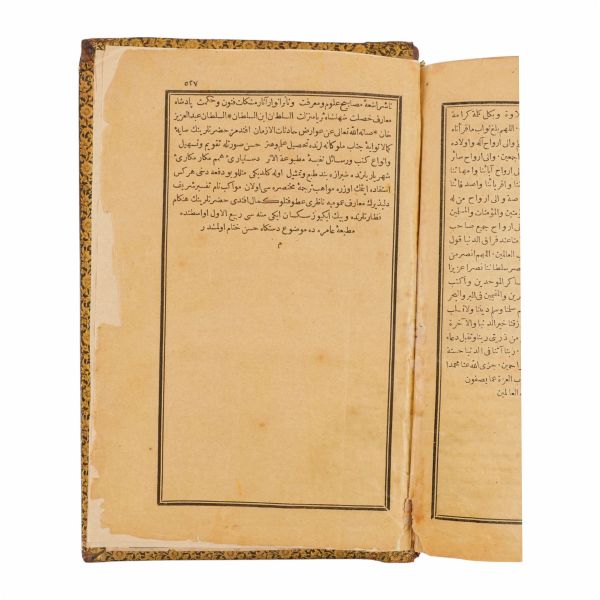 ٥٤٧
ناشر اشعهٔ مصابيح علوم ومعرفت وناثر انوار آثار مشكات فنون وحكمت پادشاه
معارف خصلت شهنشاه السلطان ابن السلطان السلطان عبد العزيز
خان صانه الله تعالى عن عوارض حادثات الازمان افندمز حضرتلرينك سايهٔ
ملوكانه لرنده تحصيل علم وهنر حسن صورتله تقويم وتسهيل
وانواع كتب ورسائل نفيسهٔ مطبوعة الاثر دستيارئ همم مكار مكارئ
شهرياريلرنده شيرازه بند طبع وتمثيل اوله كلديكى مثللو بو دفعه دخى هر كس
استفاده ايتمك اوزره مواهب ترجمهٔ مختصره سى اولان مواكب نام تفسير شريف
دلپذيرك معارف عموميه ناظرى عطوفتلو كمال افندى حضرتلرينك هنكام
نظارتلرنده وبيك ايكيوز سكسان ايكى سنه سى ربيع الاول اواسطنده
مطبعهٔ عامره ده موضوع دستكاه حسن ختام اولمشدر
م
لاوة وبكل كلمة كرامة
اللهم بلغ ثواب ما قرأناه
والى ارواح آله واولاده
اجمعين والى ارواح سائر
ارواح آبائنا وامهاتنا
واقربائنا واصدقائنا
صة والى ارواح من له
والمؤمنات والمسلمين
الى ارواح جميع صاحب
عند فراق الدنيا قول
العالمين اللهم انصر من
سلطاننا نصرا عزيزا
الموحدين واكتب
والمقيمين فى البر والبحر
سلنا وسلم ديننا ولا
خير الدنيا والآخرة
من ذريتى ربنا وتقبل دعاء
ربنا آتنا فى الدنيا حسنة
راحمين جزى الله عنا محمدا
ب العزة عما يصفون
العالمين